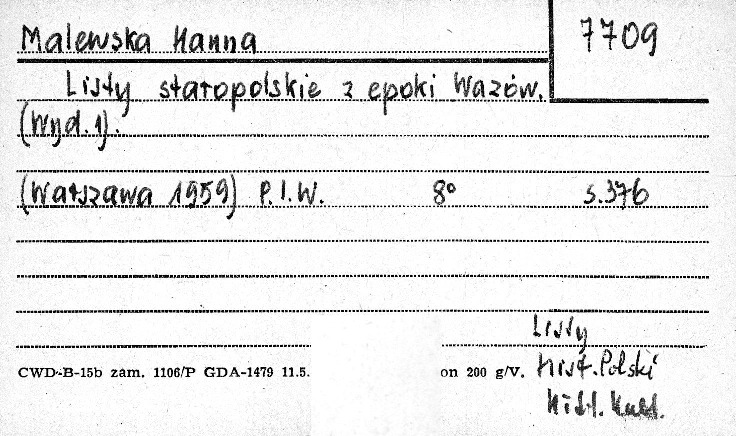 Malewska Hanna
7709
Listy staropolskie z epoki Wazów.
(Wyd. 1).
(Warszawa 1959) P.I.W. 8° s. 376
Listy
CWD-B-15b zam. 1106/P GDA-1479 11.5. on 200 g/V. Hist. Polski
Hist. Kult.